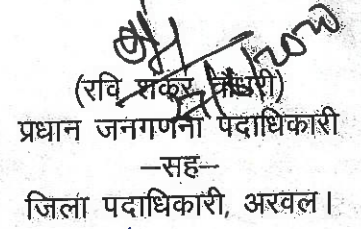 (रवि शंकर चौधरी)
प्रधान जनगणना पदाधिकारी
–सह–
जिला पदाधिकारी, अरवल।